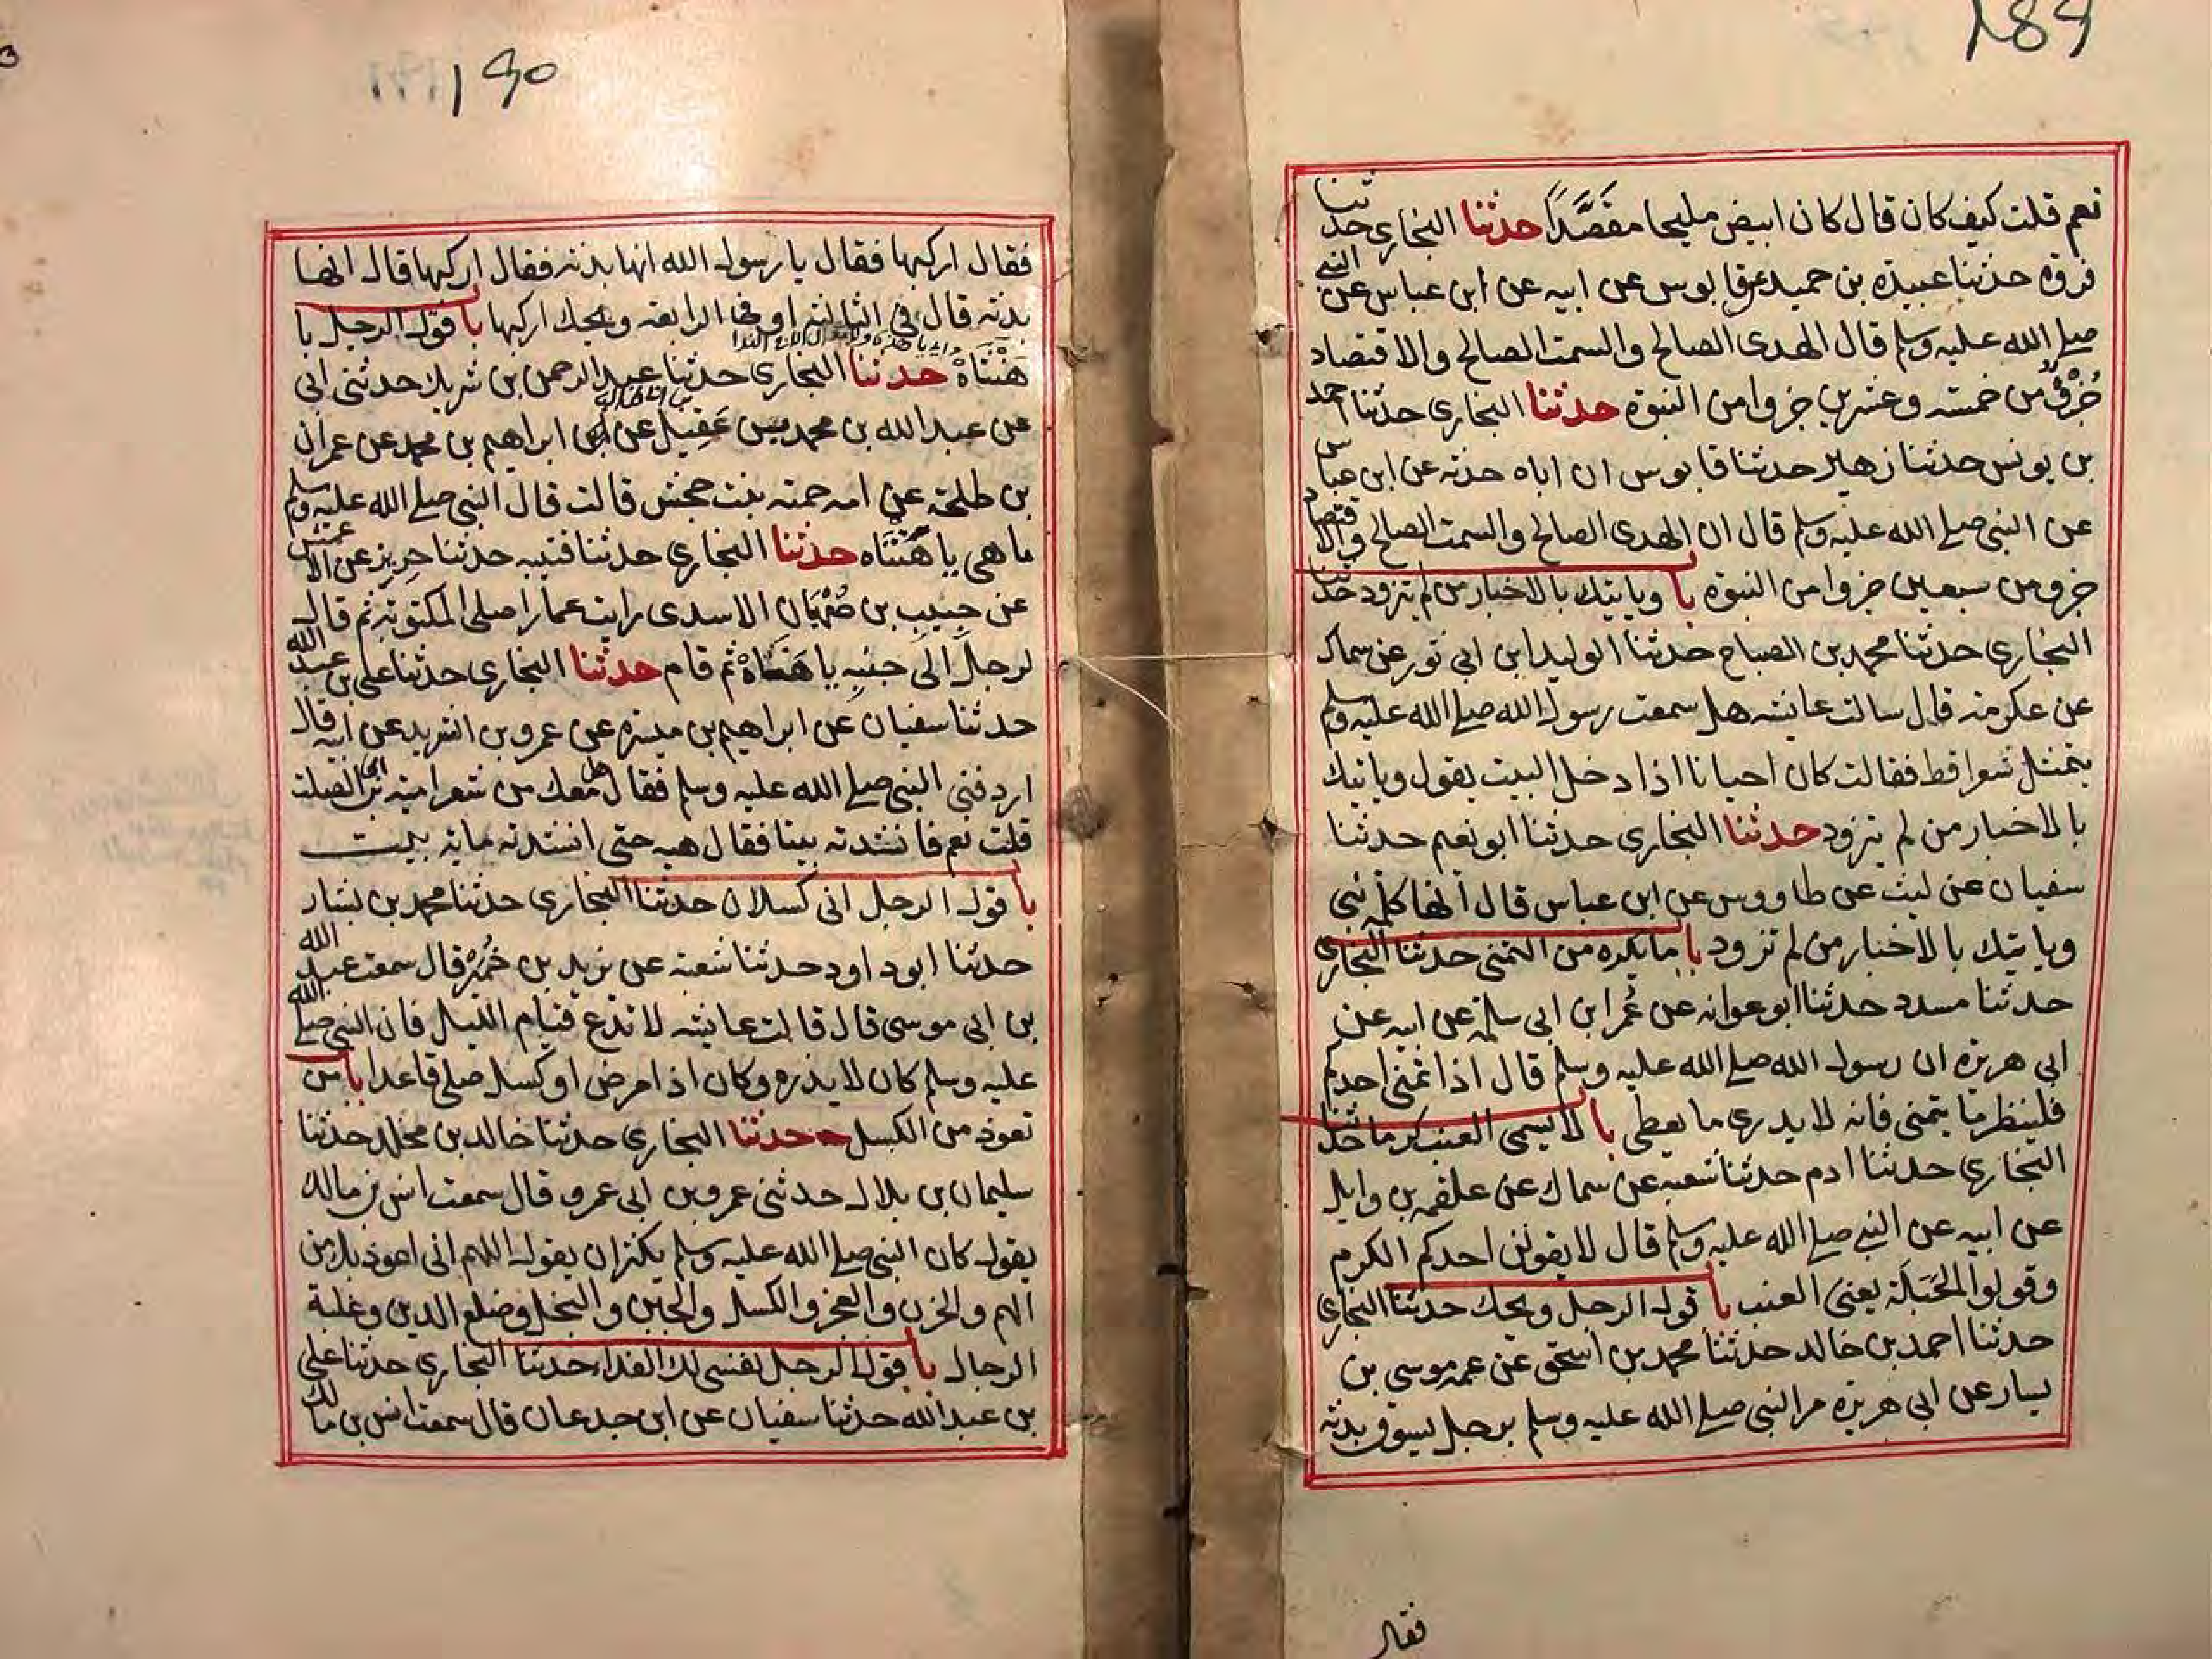 ١٨٩
نعم قلت كيف كان قال كان ابيض مليحا مقصَّدًا حدثنا البخاري حدثنا
فروة حدثنا عبيدة بن حميد عن قابوس عن ابيه عن ابن عباس عن النبي
صلے الله عليه وسلم قال الهدى الصالح والسمت الصالح والاقتصاد
جزؤ من خمسة وعشرين جزوا من النبوة حدثنا البخاري حدثنا احمد
بن يونس حدثنا زهير حدثنا قابوس ان اباه حدثه عن ابن عباس
عن النبي صلے الله عليه وسلم قال ان الهدى الصالح والسمت الصالح والاقتصاد
جزو من سبعين جزوا من النبوة با وياتيك بالاخبار من لم تزود حدثنا
البخاري حدثنا محمد بن الصباح حدثنا الوليد ابن ابي ثور عن سماك
عن عكرمة قال سالت عايشه هل سمعت رسول الله صلے الله عليه وسلم
يتمثل شعرا قط فقالت كان احيانا اذا دخل البيت يقول وياتيك
بالاخبار من لم تزود حدثنا البخاري حدثنا ابو نعيم حدثنا
سفيان عن ليث عن طاووس عن ابن عباس قال انها كلمة نبي
وياتيك بالاخبار من لم تزود با ما يكره من التمني حدثنا البخاري
حدثنا مسدد حدثنا ابو عوانه عن عُمر ابن ابي سلمة عن ابيه عن
ابي هريرة ان رسول الله صلے الله عليه وسلم قال اذا تمنى احدكم
فلينظر ما يتمنى فانه لا يدري ما يعطى با لا يسمى العنب كرما حدثنا
البخاري حدثنا ادم حدثنا شعبه عن سماك عن علقمه بن وايل
عن ابيه عن النبي صلے الله عليه وسلم قال لا يقولن احدكم الكرم
وقولوا الحَبَلَة يعنى العنب با قول الرجل ويحك حدثنا البخاري
حدثنا احمد بن خالد حدثنا محمد بن اسحق عن عمه موسى بن
يسار عن ابي هريرة مر النبي صلے الله عليه وسلم برجل يسوق بدنة
فقال
١٩٠
فقال اركبها فقال يا رسول الله انها بدنة فقال اركبها قال انها
بدنة قال في الثالثة او في الرابعة ويحك اركبها با قول الرجل يا
هَنْتَاهْ حدثنا البخاري حدثنا عبد الرحمن بن شريك حدثني ابي
عن عبد الله بن محمد بن عقيل عن ابراهيم بن محمد عن عمران
بن طلحة عن امه حمنه بنت جحش قالت قال النبي صلے الله عليه وسلم
ما هى يا هَنْتَاه حدثنا البخاري حدثنا قتيبه حدثنا جرير عن الاعمش
عن حبيب بن صُهْبَان الاسدى رايت عمارا صلى المكتوبة ثم قال
لرجل الى جنبه يا هَنَتَاهْ ثم قام حدثنا البخاري حدثنا على بن عبد الله
حدثنا سفيان عن ابراهيم بن ميسره عن عمرو بن الشريد عن ابيه قال
اردفني النبي صلے الله عليه وسلم فقال هل معك من شعر امية ابن ابي الصلت
قلت نعم فانشدته بيتا فقال هيه حتى انشدته ماية بيت
با قول الرجل انى كسلان حدثنا البخاري حدثنا محمد بن بشار
حدثنا ابو داود حدثنا شعبة عن يزيد بن خُمَيْر قال سمعت عبد الله
بن ابي موسى قال قالت عايشه لا تدع قيام الليل فان النبي صلے الله
عليه وسلم كان لا يذره وكان اذا مرض او كسل صلى قاعدا با من
تعوذ من الكسل حدثنا البخاري حدثنا خالد بن مخلد حدثنا
سليمان بن بلال حدثني عمرو بن ابي عمرو قال سمعت انس بن مالك
يقول كان النبي صلے الله عليه وسلم يكثر ان يقول اللهم انى اعوذ بك من
الهم والحزن والعجز والكسل والجبن والبخل وضلع الدين وغلبة
الرجال با قول الرجل نفسى لك الفداء حدثنا البخاري حدثنا على
بن عبد الله حدثنا سفيان عن ابن جدعان قال سمعت انس بن مالك